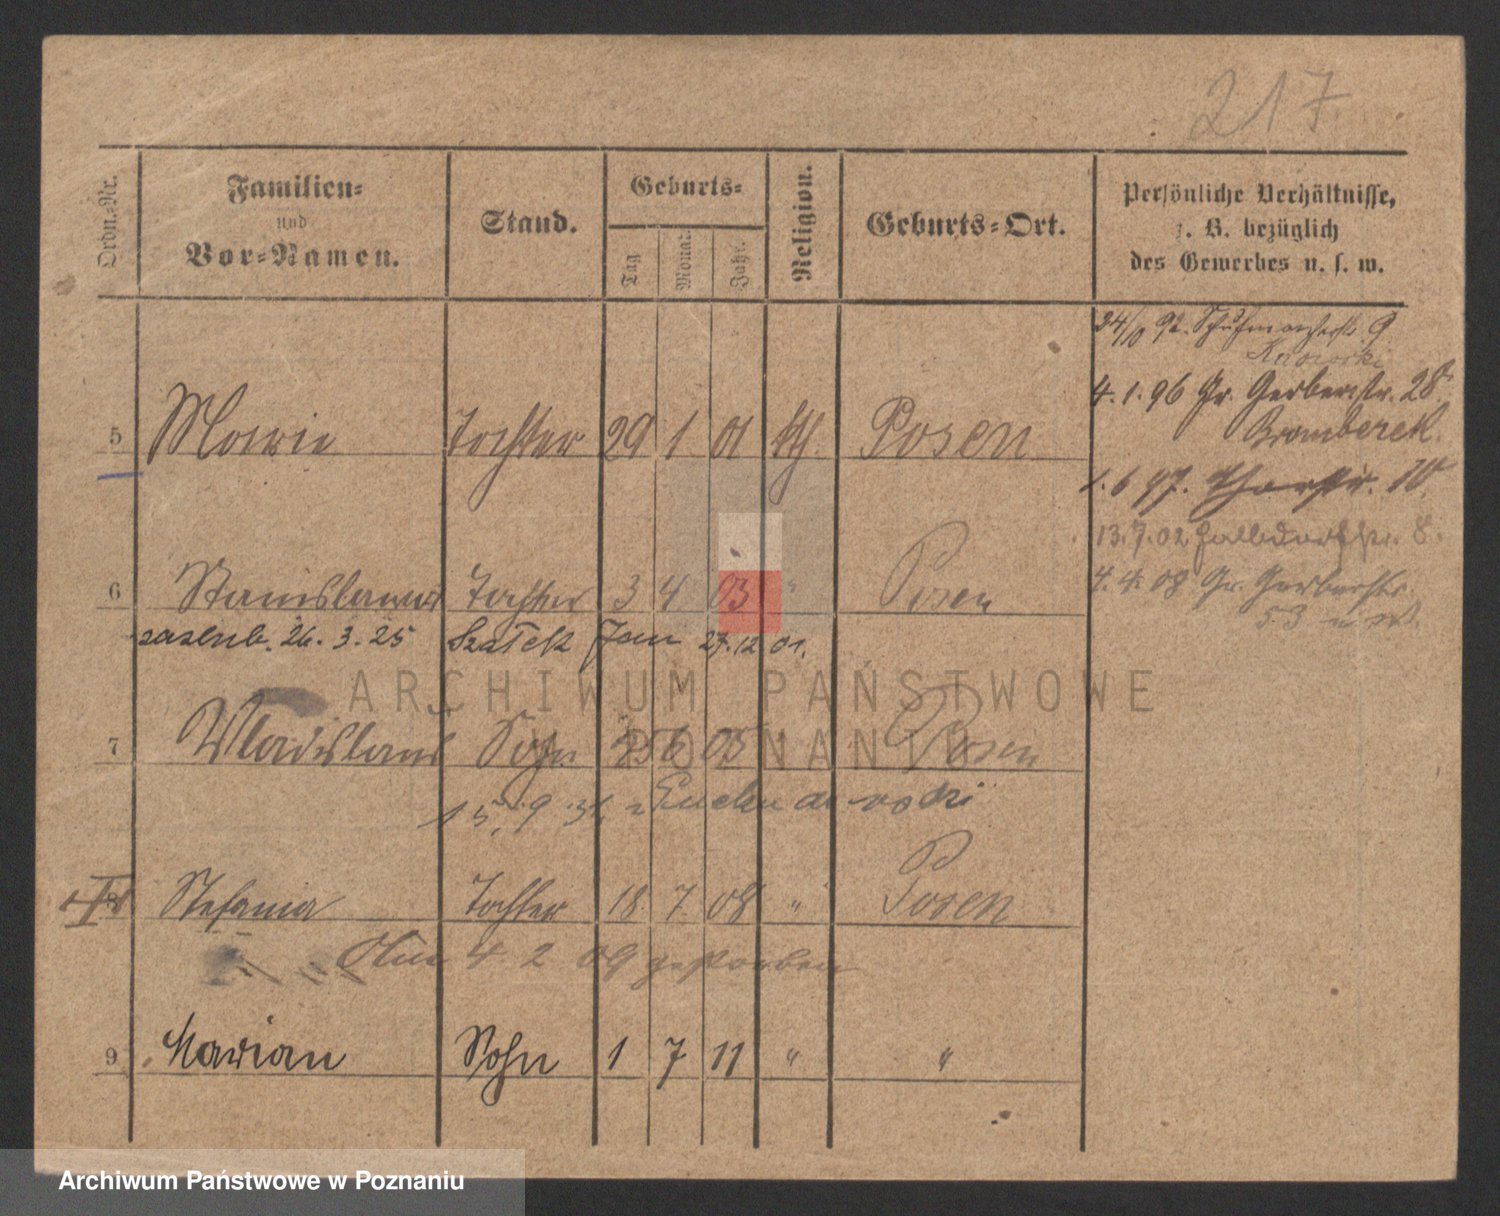 217.
Ordn.-Nr.
Familien-
und
Vor-Namen.
Stand.
Geburts-
Tag
Monat
Jahr.
Religion.
Geburts-Ort.
Persönliche Verhältnisse,
z. B. bezüglich
des Gewerbes u. s. w.
24/10 92. Schuhmacherstr. 9
4.1.96 Gr. Gerberstr. 28
5 Marie Tochter 29 1 01 kth. Posen
1.6 97. Thorstr. 10
13.7.02 Halbdorfstr. 8.
4.4.08 Gr. Gerberstr.
53
6 Stanislawa Tochter 3 4 03 " Posen
zaslub. 26.3.25 Szałek Jan 27.12.01.
ARCHIWUM PAŃSTWOWE
W POZNANIU
7 Wladislaus Sohn 25 6 05 Posen
15.9.31.
8 Stefania Tochter 18 7 08 " Posen
4 2 09 gestorben
9 Marian Sohn 1 7 11 " "
Archiwum Państwowe w Poznaniu